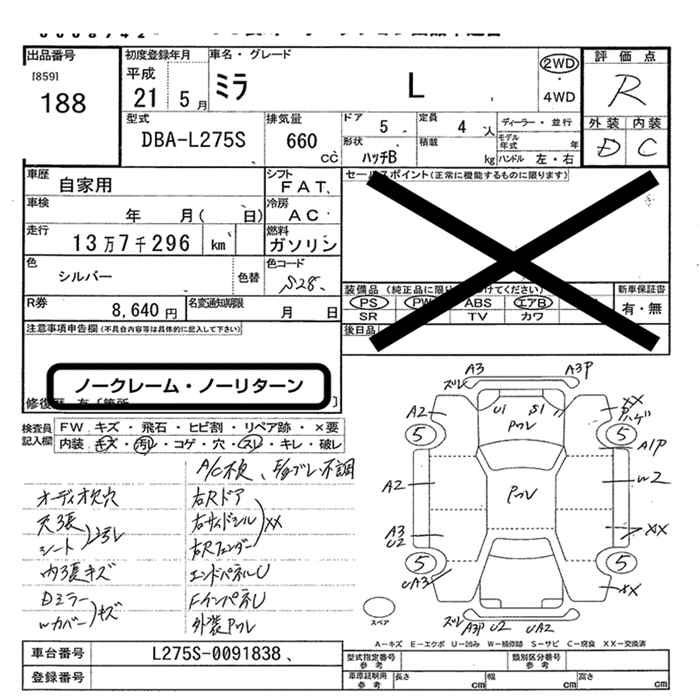 出品番号
[859]
188
初度登録年月
平成
21 5 月
車名・グレード
ミラ L
2WD
・
4WD
評価点
R
外装 内装
D C
型式
DBA-L275S
排気量
660
cc
ドア
5
定員
4 人
形状
ハッチB
積載
kg
ディーラー・並行
モデル年式 年
ハンドル 左・右
車歴
自家用
シフト
FAT
車検
年 月( 日)
冷房
AC
走行
13万7千296 km
燃料
ガソリン
色
シルバー
色替
色コード
S28
R券
8,640 円
名変通知期限
月 日
セールスポイント(正常に機能するものに限ります)
PS PW ABS エアB
SR TV カワ
新車保証書
有・無
後日品
注意事項申告欄(不具合内容等は具体的に記入して下さい)
ノークレーム・ノーリターン
検査員記入欄
FW キズ・飛石・ヒビ割・リペア跡・×要
内装・キズ・汚れ・コゲ・穴・スレ・キレ・破レ
A/C不良、
オーディオ欠穴
天張
シート
内張キズ
Dミラー
Wカバー
キズ
右Rドア
右サイドシル
右Rフェンダー
XX
エンドパネルU
FインパネU
外装PウL
A3 A3P
ズレ
A2
U1 S1
XX
P
ハゲ
5 5
A1P
A2
W2
A3
U2
XX
5 5
UA3
XX
ズレ
A3P U2 UA2
スペア
A-キズ E-エクボ U-凹み W-補修跡 S-サビ C-腐食 XX-交換済
車台番号
L275S-0091838
登録番号
型式指定番号
参考
類別区分番号
参考
車庫証明用
参考
長さ cm
幅 cm
高さ cm